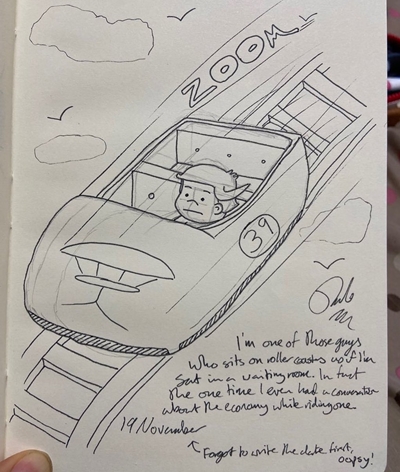 ZOOM
39
I'm one of those guys
who sits on roller coasters as if I'm
sat in a waiting room. In fact
the one time I even had a conversation
about the economy while riding one.
19 November
Forgot to write the date first,
oopsy!